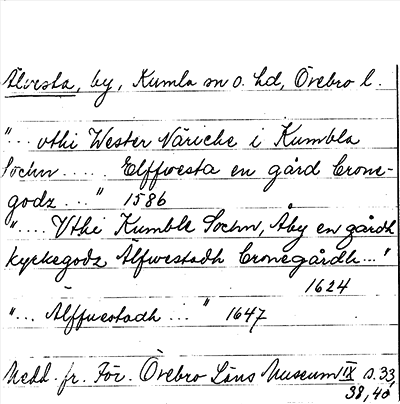 Älvesta, by, Kumla sn o. hd, Örebro l.
"... vthi Wester Näricke i Kumbla
Sochn ..... Elffwesta en gård Crone-
godz ..." 1586
".... Vthi Kumble Sochn, Åby en gårdh
kyrkegodz Älfwestadh Cronegårdh..."
1624
"... Älffuestadh ..." 1647
Medd. fr. För. Örebro Läns Museum IX s. 33,
38, 40